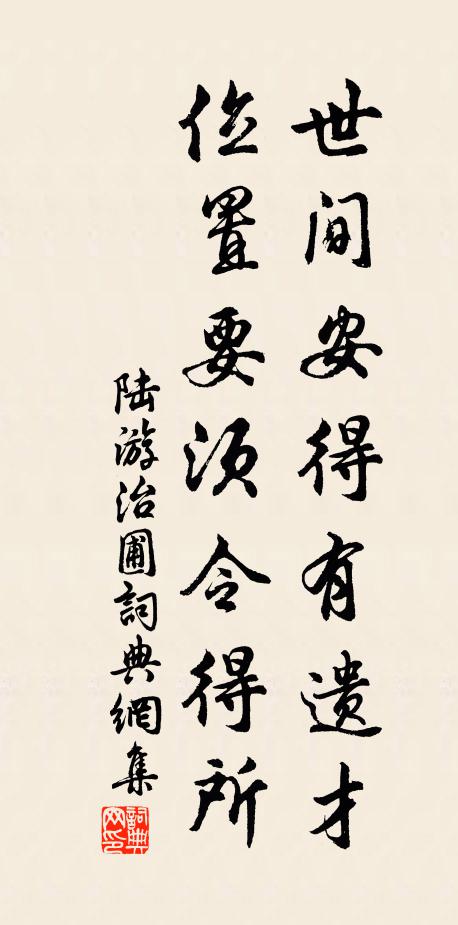 世间安得有遗才
位置要须令得所
陆游治圃詞典網集
詞典网印